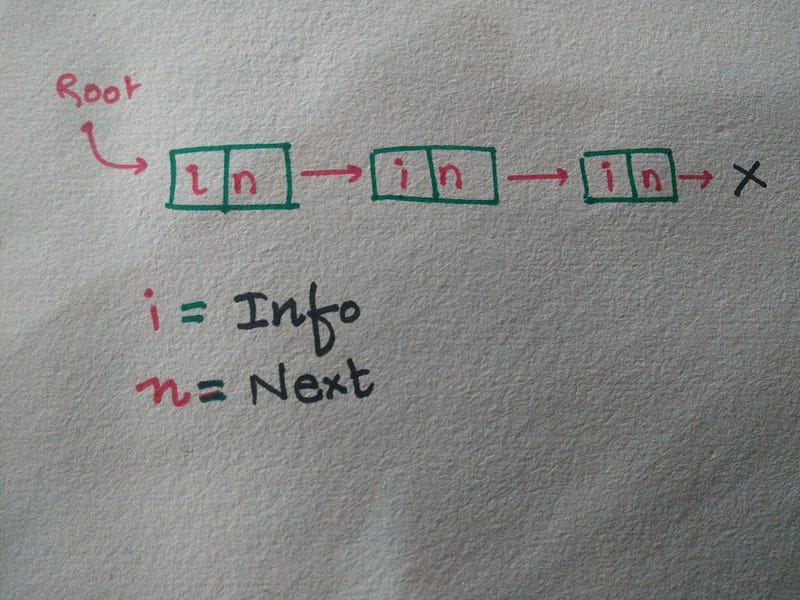 Root
i n i n i n X
i = Info
n = Next